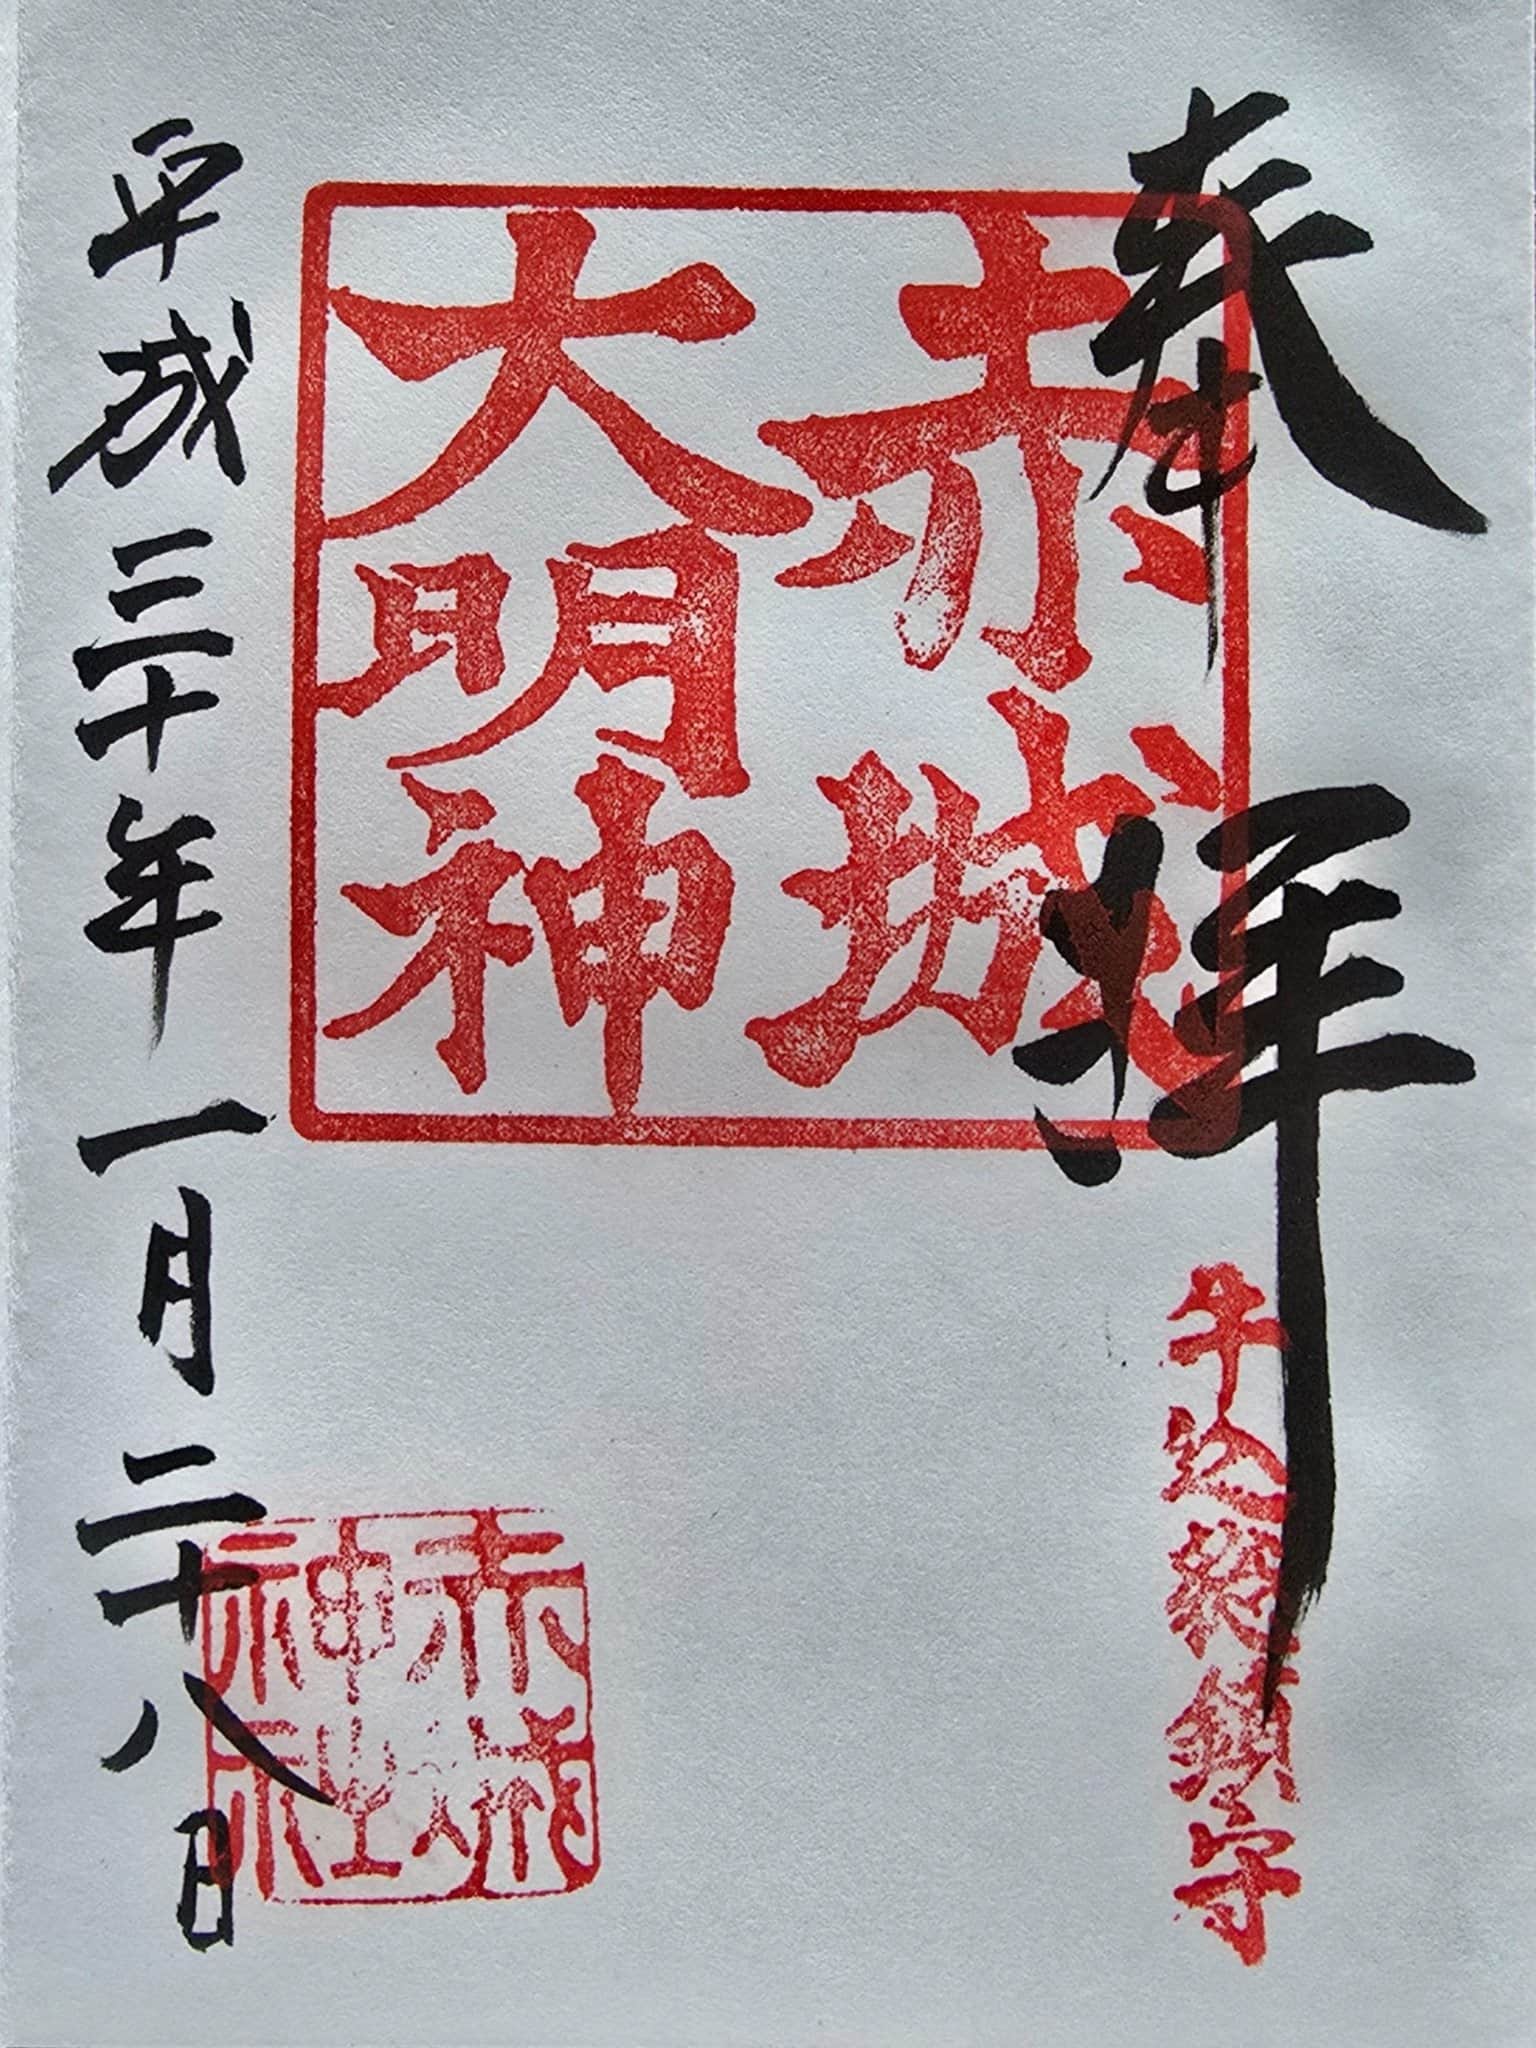 奉拝
牛込総鎮守
赤城
大明神
赤城
神社
平成三十年一月二十八日